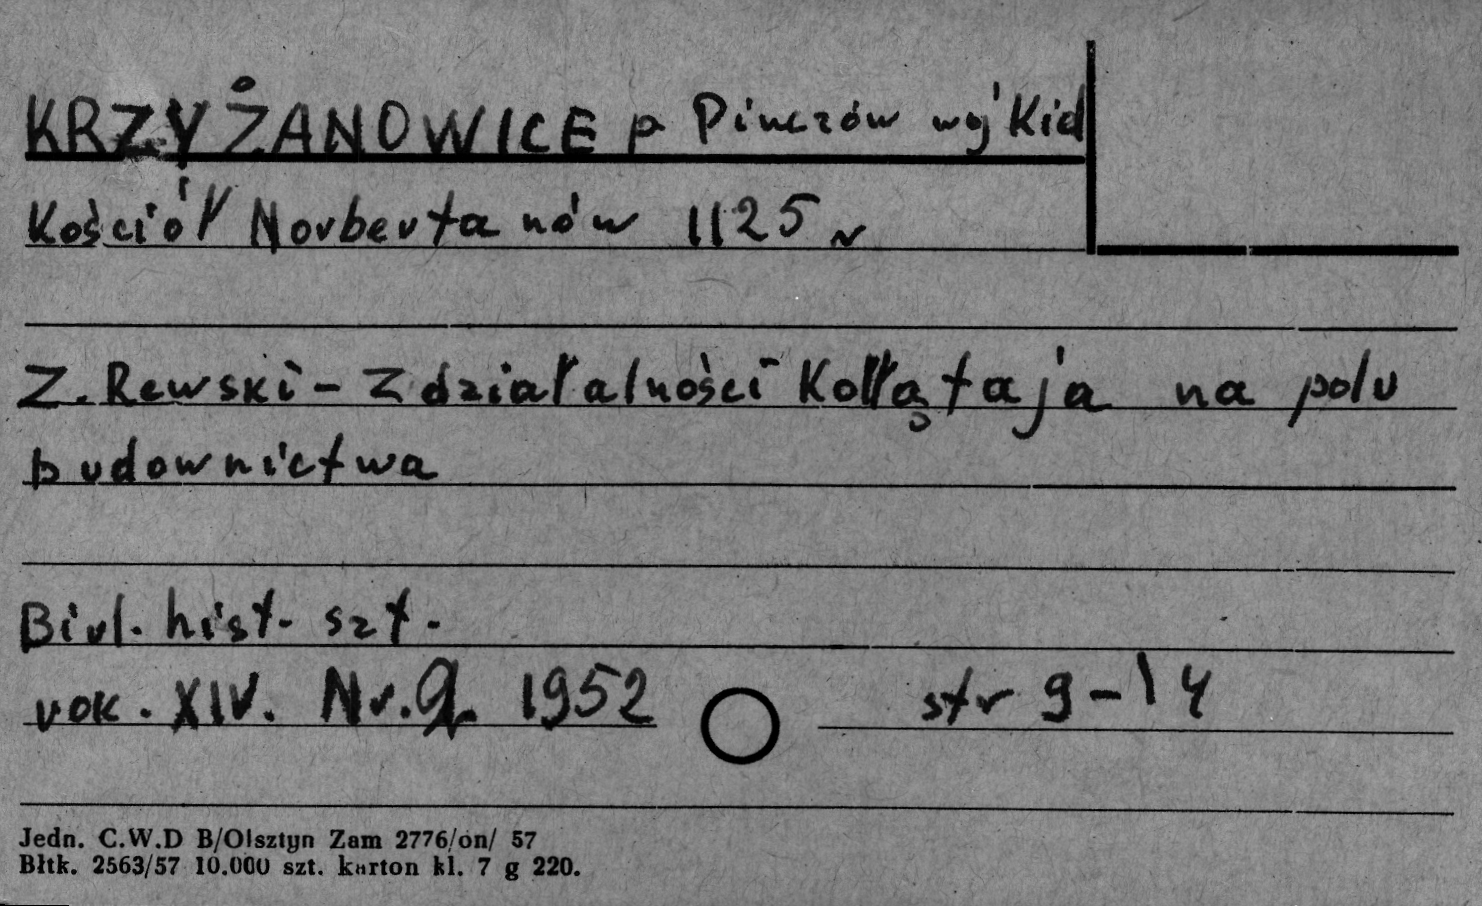 KRZYŻANOWICE p Pinczów woj Kiel
Kościół Norbertanów 1125 r
Z. Rewski – Z działalności Kołłątaja na polu
budownictwa
Biul. hist. szt.
rok. XIV. Nr. 1952
str 9–14
Jedn. C.W.D B/Olsztyn Zam 2776/on/ 57
Błtk. 2563/57 10.000 szt. karton kl. 7 g 220.